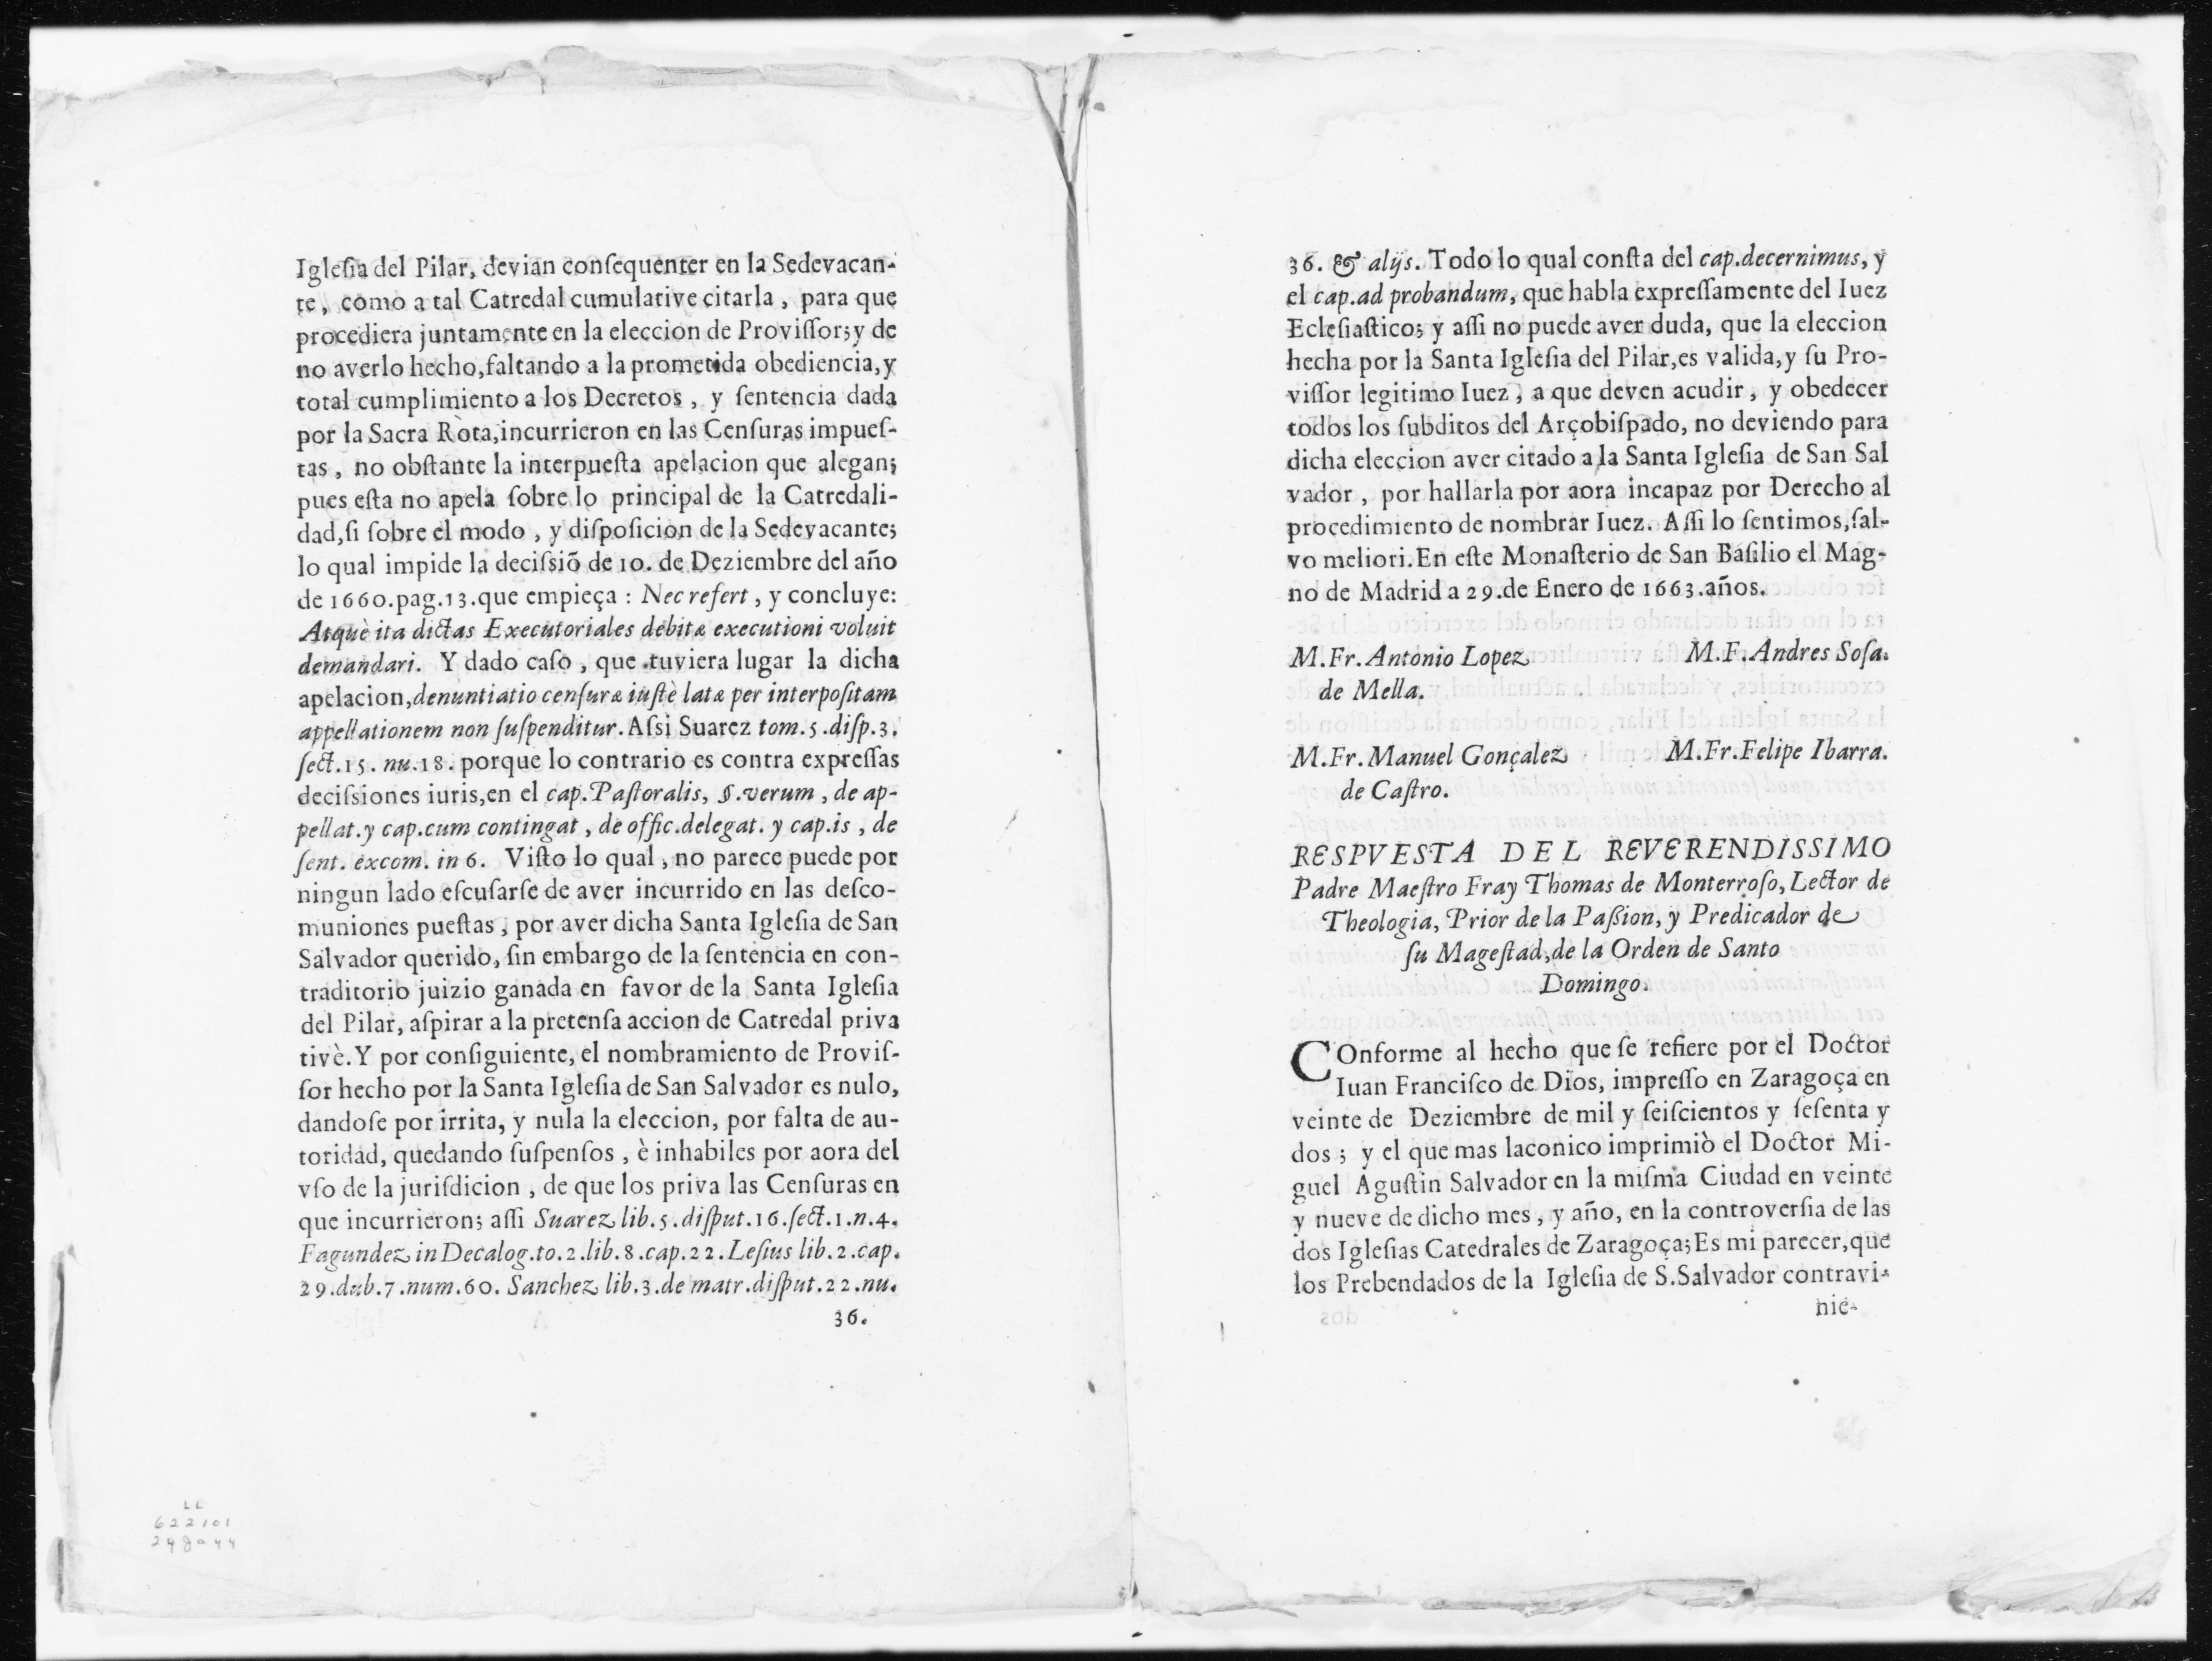 Igleſia del Pilar, devian conſequenter en la Sedevacan-
te, como a tal Catredal cumulative citarla, para que
procediera juntamente en la eleccion de Proviſſor; y de
no averlo hecho, faltando a la prometida obediencia, y
total cumplimiento a los Decretos, y ſentencia dada
por la Sacra Ròta, incurrieron en las Cenſuras impueſ-
tas, no obſtante la interpueſta apelacion que alegan;
pues eſta no apela ſobre lo principal de la Catredali-
dad, ſi ſobre el modo, y diſpoſicion de la Sedevacante;
lo qual impide la deciſsiõ de 10. de Deziembre del año
de 1660. pag. 13. que empieça: Nec refert, y concluye:
Atquè ita dictas Executoriales debitæ executioni voluit
demandari. Y dado caſo, que tuviera lugar la dicha
apelacion, denuntiatio cenſuræ iuſtè latæ per interpoſitam
appellationem non ſuſpenditur. Aſsi Suarez tom. 5. diſp. 3.
ſect. 15. nu. 18. porque lo contrario es contra expreſſas
deciſsiones iuris, en el cap. Paſtoralis, §. verum, de ap-
pellat. y cap. cum contingat, de offic. delegat. y cap. is, de
ſent. excom. in 6. Viſto lo qual, no parece puede por
ningun lado eſcuſarſe de aver incurrido en las deſco-
muniones pueſtas, por aver dicha Santa Igleſia de San
Salvador querido, ſin embargo de la ſentencia en con-
traditorio juizio ganada en favor de la Santa Igleſia
del Pilar, aſpirar a la pretenſa accion de Catredal priva
tivè. Y por conſiguiente, el nombramiento de Proviſ-
ſor hecho por la Santa Igleſia de San Salvador es nulo,
dandoſe por irrita, y nula la eleccion, por falta de au-
toridad, quedando ſuſpenſos, è inhabiles por aora del
vſo de la juriſdicion, de que los priva las Cenſuras en
que incurrieron; aſſi Suarez lib. 5. diſput. 16. ſect. 1. n. 4.
Fagundez in Decalog. to. 2. lib. 8. cap. 22. Leſius lib. 2. cap.
29. dub. 7. num. 60. Sanchez lib. 3. de matr. diſput. 22. nu.
36.
LL
622101
36. & alijs. Todo lo qual conſta del cap. decernimus, y
el cap. ad probandum, que habla expreſſamente del Iuez
Ecleſiaſtico; y aſſi no puede aver duda, que la eleccion
hecha por la Santa Igleſia del Pilar, es valida, y ſu Pro-
viſſor legitimo Iuez, a que deven acudir, y obedecer
todos los ſubditos del Arçobiſpado, no deviendo para
dicha eleccion aver citado a la Santa Igleſia de San Sal
vador, por hallarla por aora incapaz por Derecho al
procedimiento de nombrar Iuez. Aſſi lo ſentimos, ſal-
vo meliori. En eſte Monaſterio de San Baſilio el Mag-
no de Madrid a 29. de Enero de 1663. años.
M. Fr. Antonio Lopez M. F. Andres Soſa.
de Mella.
M. Fr. Manuel Gonçalez M. Fr. Felipe Ibarra.
de Caſtro.
RESPVESTA DEL REVERENDISSIMO
Padre Maeſtro Fray Thomas de Monterroſo, Lector de
Theologia, Prior de la Paßion, y Predicador de
ſu Mageſtad, de la Orden de Santo
Domingo.
COnforme al hecho que ſe refiere por el Doctor
Iuan Franciſco de Dios, impreſſo en Zaragoça en
veinte de Deziembre de mil y ſeiſcientos y ſeſenta y
dos; y el que mas laconico imprimiò el Doctor Mi-
guel Aguſtin Salvador en la miſma Ciudad en veinte
y nueve de dicho mes, y año, en la controverſia de las
dos Igleſias Catedrales de Zaragoça; Es mi parecer, que
los Prebendados de la Igleſia de S. Salvador contravi-
nie-